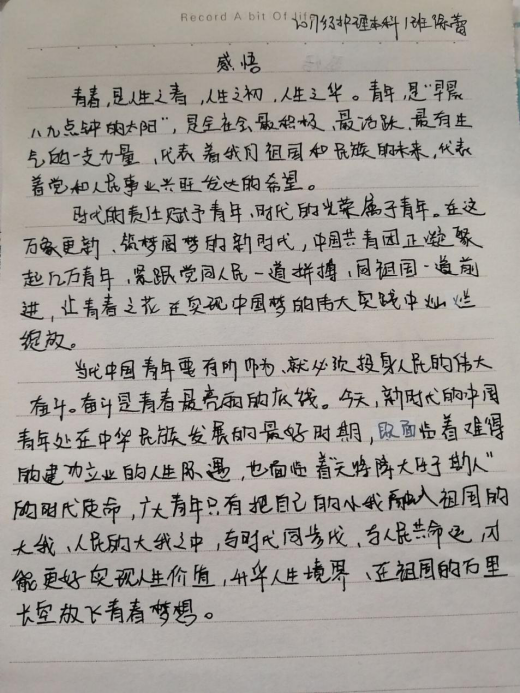 Record A bit Of life
级护理本科1班陈蕾
感悟
青春,是人生之春,人生之初,人生之华。青年,是"早晨
八九点钟的太阳",是全社会最积极、最活跃、最有生
气的一支力量,代表着我们祖国和民族的未来,代表
着党和人民事业兴旺发达的希望。
时代的责任赋予青年,时代的光荣属于青年。在这
万象更新、筑梦圆梦的新时代,中国共青团正凝聚
起几万青年,紧跟党同人民一道拼搏、同祖国一道前
进,让青春之花在实现中国梦的伟大实践中灿烂
绽放。
当代中国青年要有所作为,就必须投身人民的伟大
奋斗。奋斗是青春最亮丽的底线。今天,新时代的中国
青年处在中华民族发展的最好时期,既面临着难得
的建功立业的人生际遇,也面临着"天将降大任于斯人"
的时代使命,广大青年只有把自己的小我融入祖国的
大我、人民的大我之中,与时代同步伐、与人民共命运,才
能更好实现人生价值,升华人生境界、在祖国的万里
长空放飞青春梦想。